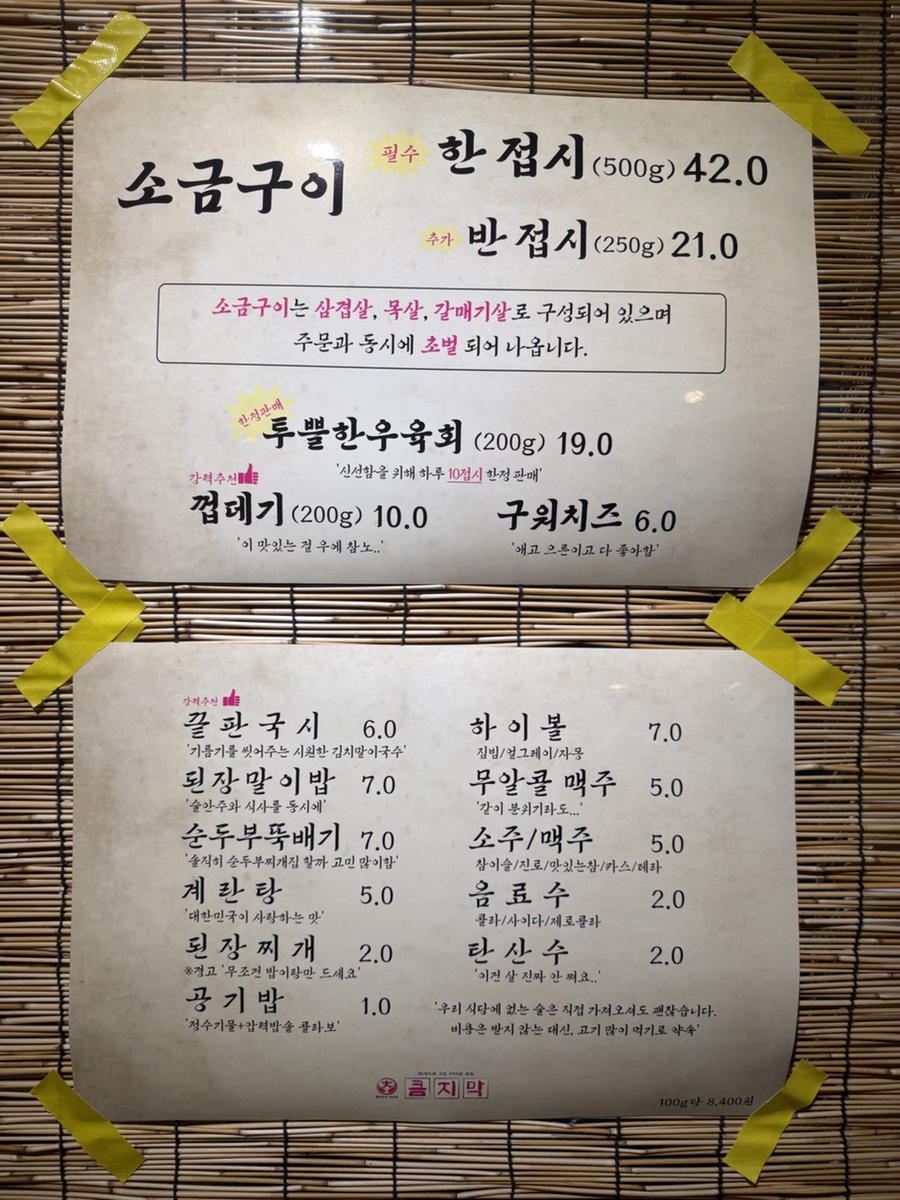 소금구이
필수 한 접시 (500g) 42.0
추가 반 접시 (250g) 21.0
소금구이는 삼겹살, 목살, 갈매기살로 구성되어 있으며
주문과 동시에 초벌 되어 나옵니다.
한정판매
투뿔한우육회 (200g) 19.0
'신선함을 위해 하루 10접시 한정 판매'
강력추천
껍데기 (200g) 10.0
'이 맛있는 걸 우에 참노..'
구워치즈 6.0
'애고 으른이고 다 좋아함'
강력추천
끝판국시 6.0
'기름기를 씻어주는 시원한 김치말이국수'
된장말이밥 7.0
'술안주와 식사를 동시에'
순두부뚝배기 7.0
'솔직히 순두부찌개집 할까 고민 많이함'
계란탕 5.0
'대한민국이 사랑하는 맛'
된장찌개 2.0
※경고 '무조건 밥이랑만 드세요'
공기밥 1.0
'정수기물+압력밥솥 콜라보'
하이볼 7.0
짐빔/얼그레이/자몽
무알콜 맥주 5.0
'같이 분위기라도...'
소주/맥주 5.0
참이슬/진로/맛있는참/카스/테라
음료수 2.0
콜라/사이다/제로콜라
탄산수 2.0
'이건 살 진짜 안 쪄요..'
'우리 식당에 없는 술은 직접 가져오셔도 괜찮습니다.
비용은 받지 않는 대신, 고기 많이 먹기로 약속'
큼지막
100g당 8,400원